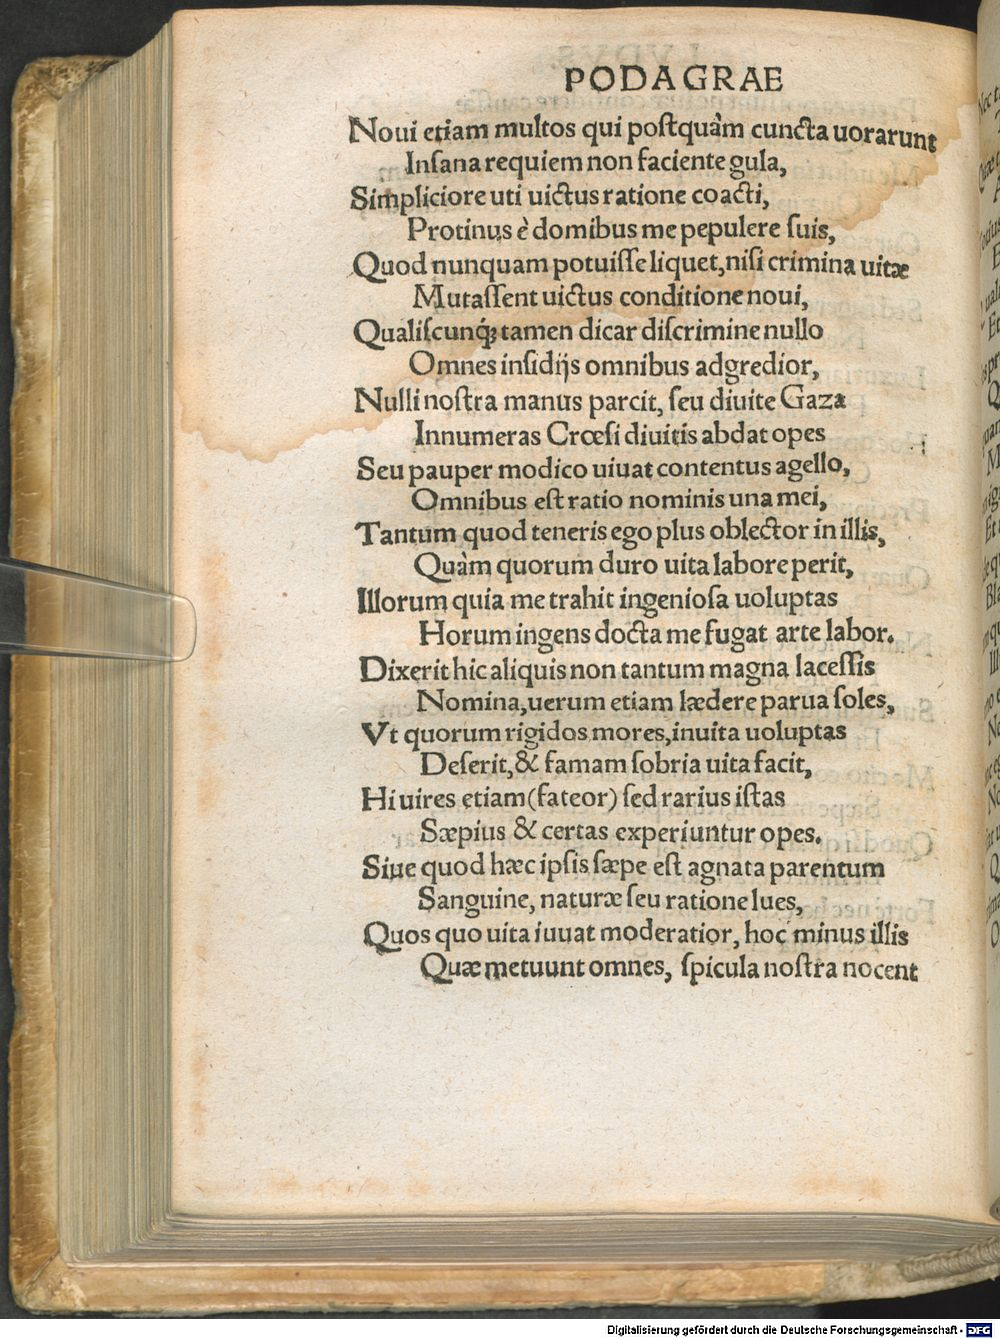 PODAGRAE
Noui etiam multos qui poſtquàm cuncta uorarunt
Inſana requiem non faciente gula,
Simpliciore uti uictus ratione coacti,
Protinus è domibus me pepulere ſuis,
Quod nunquam potuiſſe liquet, niſi crimina uitæ
Mutaſſent uictus conditione noui,
Qualiſcunq́; tamen dicar diſcrimine nullo
Omnes inſidijs omnibus adgredior,
Nulli noſtra manus parcit, ſeu diuite Gaza
Innumeras Crœſi diuitis abdat opes
Seu pauper modico uiuat contentus agello,
Omnibus eſt ratio nominis una mei,
Tantum quod teneris ego plus oblector in illis,
Quàm quorum duro uita labore perit,
Illorum quia me trahit ingenioſa uoluptas
Horum ingens docta me fugat arte labor.
Dixerit hic aliquis non tantum magna laceſſis
Nomina, uerum etiam lædere parua ſoles,
Vt quorum rigidos mores, inuita uoluptas
Deſerit, & famam ſobria uita facit,
Hi uires etiam (fateor) ſed rarius iſtas
Sæpius & certas experiuntur opes.
Siue quod hæc ipſis ſæpe eſt agnata parentum
Sanguine, naturæ ſeu ratione lues,
Quos quo uita iuuat moderatior, hoc minus illis
Quæ metuunt omnes, ſpicula noſtra nocent
Digitalisierung gefördert durch die Deutsche Forschungsgemeinschaft - DFG